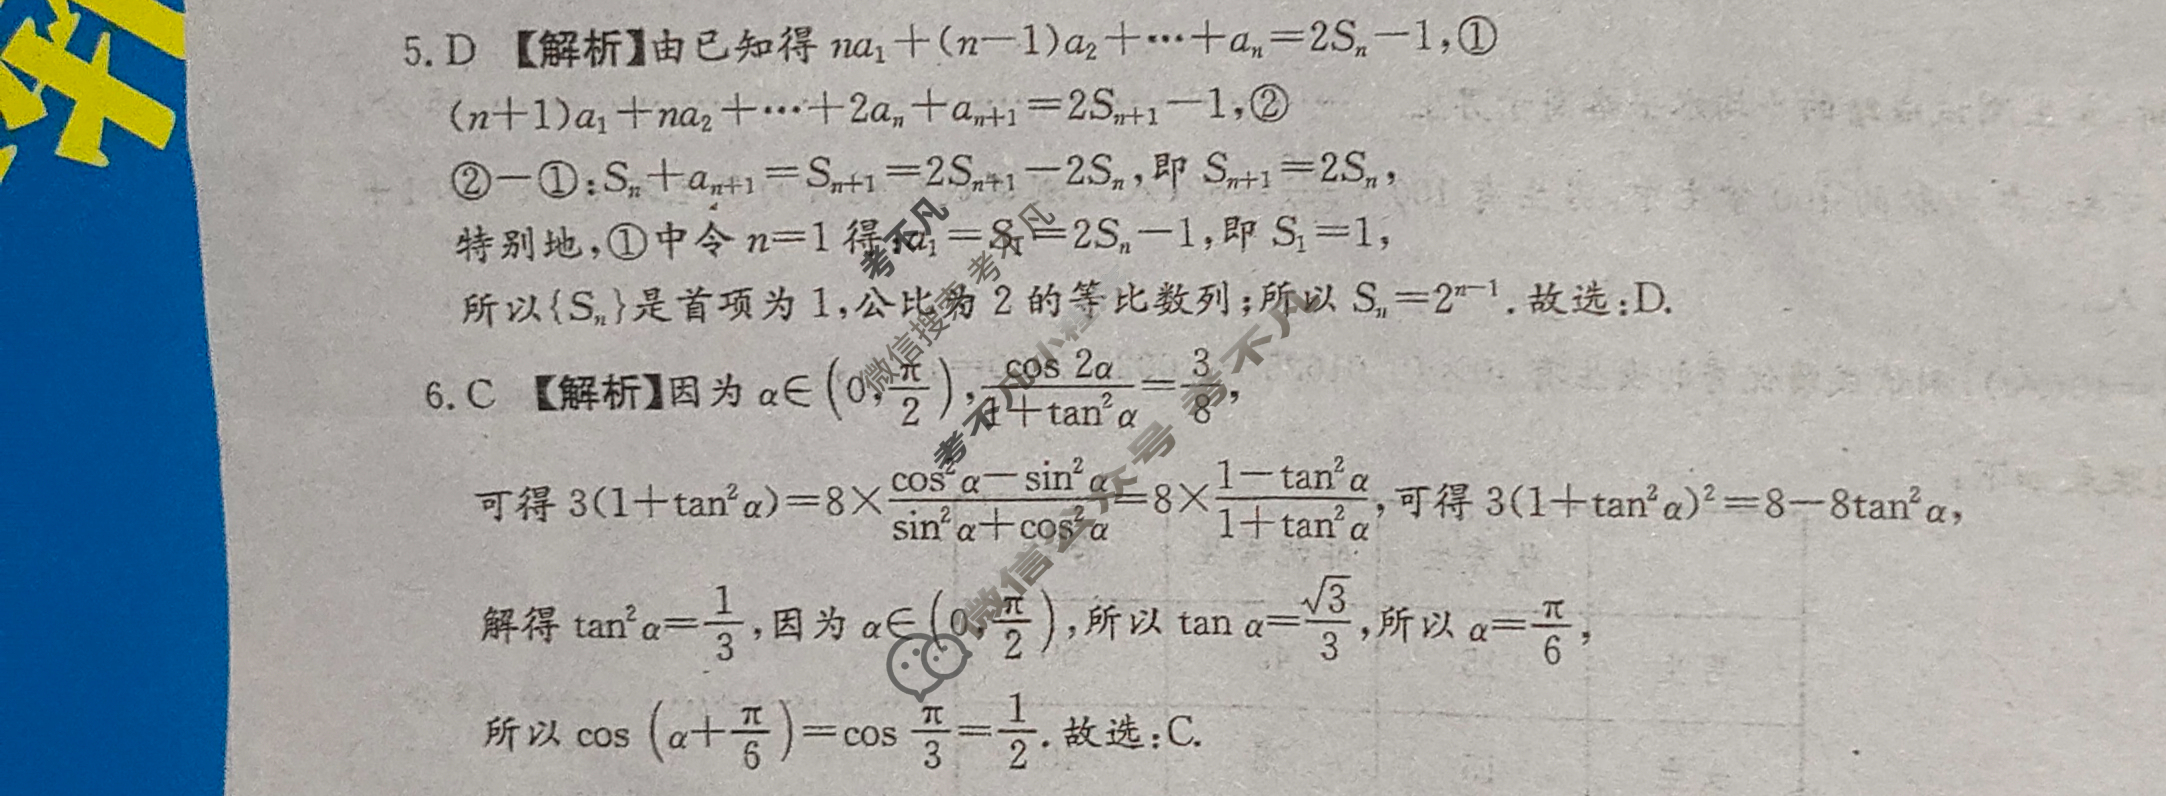 5. D 【解析】由已知得 na₁+(n−1)a₂+⋯+aₙ=2Sₙ−1,①
(n+1)a₁+na₂+⋯+2aₙ+aₙ₊₁=2Sₙ₊₁−1,②
②−①:Sₙ+aₙ₊₁=Sₙ₊₁=2Sₙ₊₁−2Sₙ,即 Sₙ₊₁=2Sₙ,
特别地,①中令 n=1 得:a₁=S₁=2Sₙ−1,即 S₁=1,
所以{Sₙ}是首项为 1,公比为 2 的等比数列;所以 Sₙ=2ⁿ⁻¹.故选:D.
6. C 【解析】因为 α∈(0,π/2),cos 2α/(1+tan²α)=3/8,
可得 3(1+tan²α)=8×(cos²α−sin²α)/(sin²α+cos²α)=8×(1−tan²α)/(1+tan²α),可得 3(1+tan²α)²=8−8tan²α,
解得 tan²α=1/3,因为 α∈(0,π/2),所以 tan α=√3/3,所以 α=π/6,
所以 cos (α+π/6)=cos π/3=1/2.故选:C.
考不凡
微信搜索 考不凡
考不凡小程序
微信公众号 考不凡